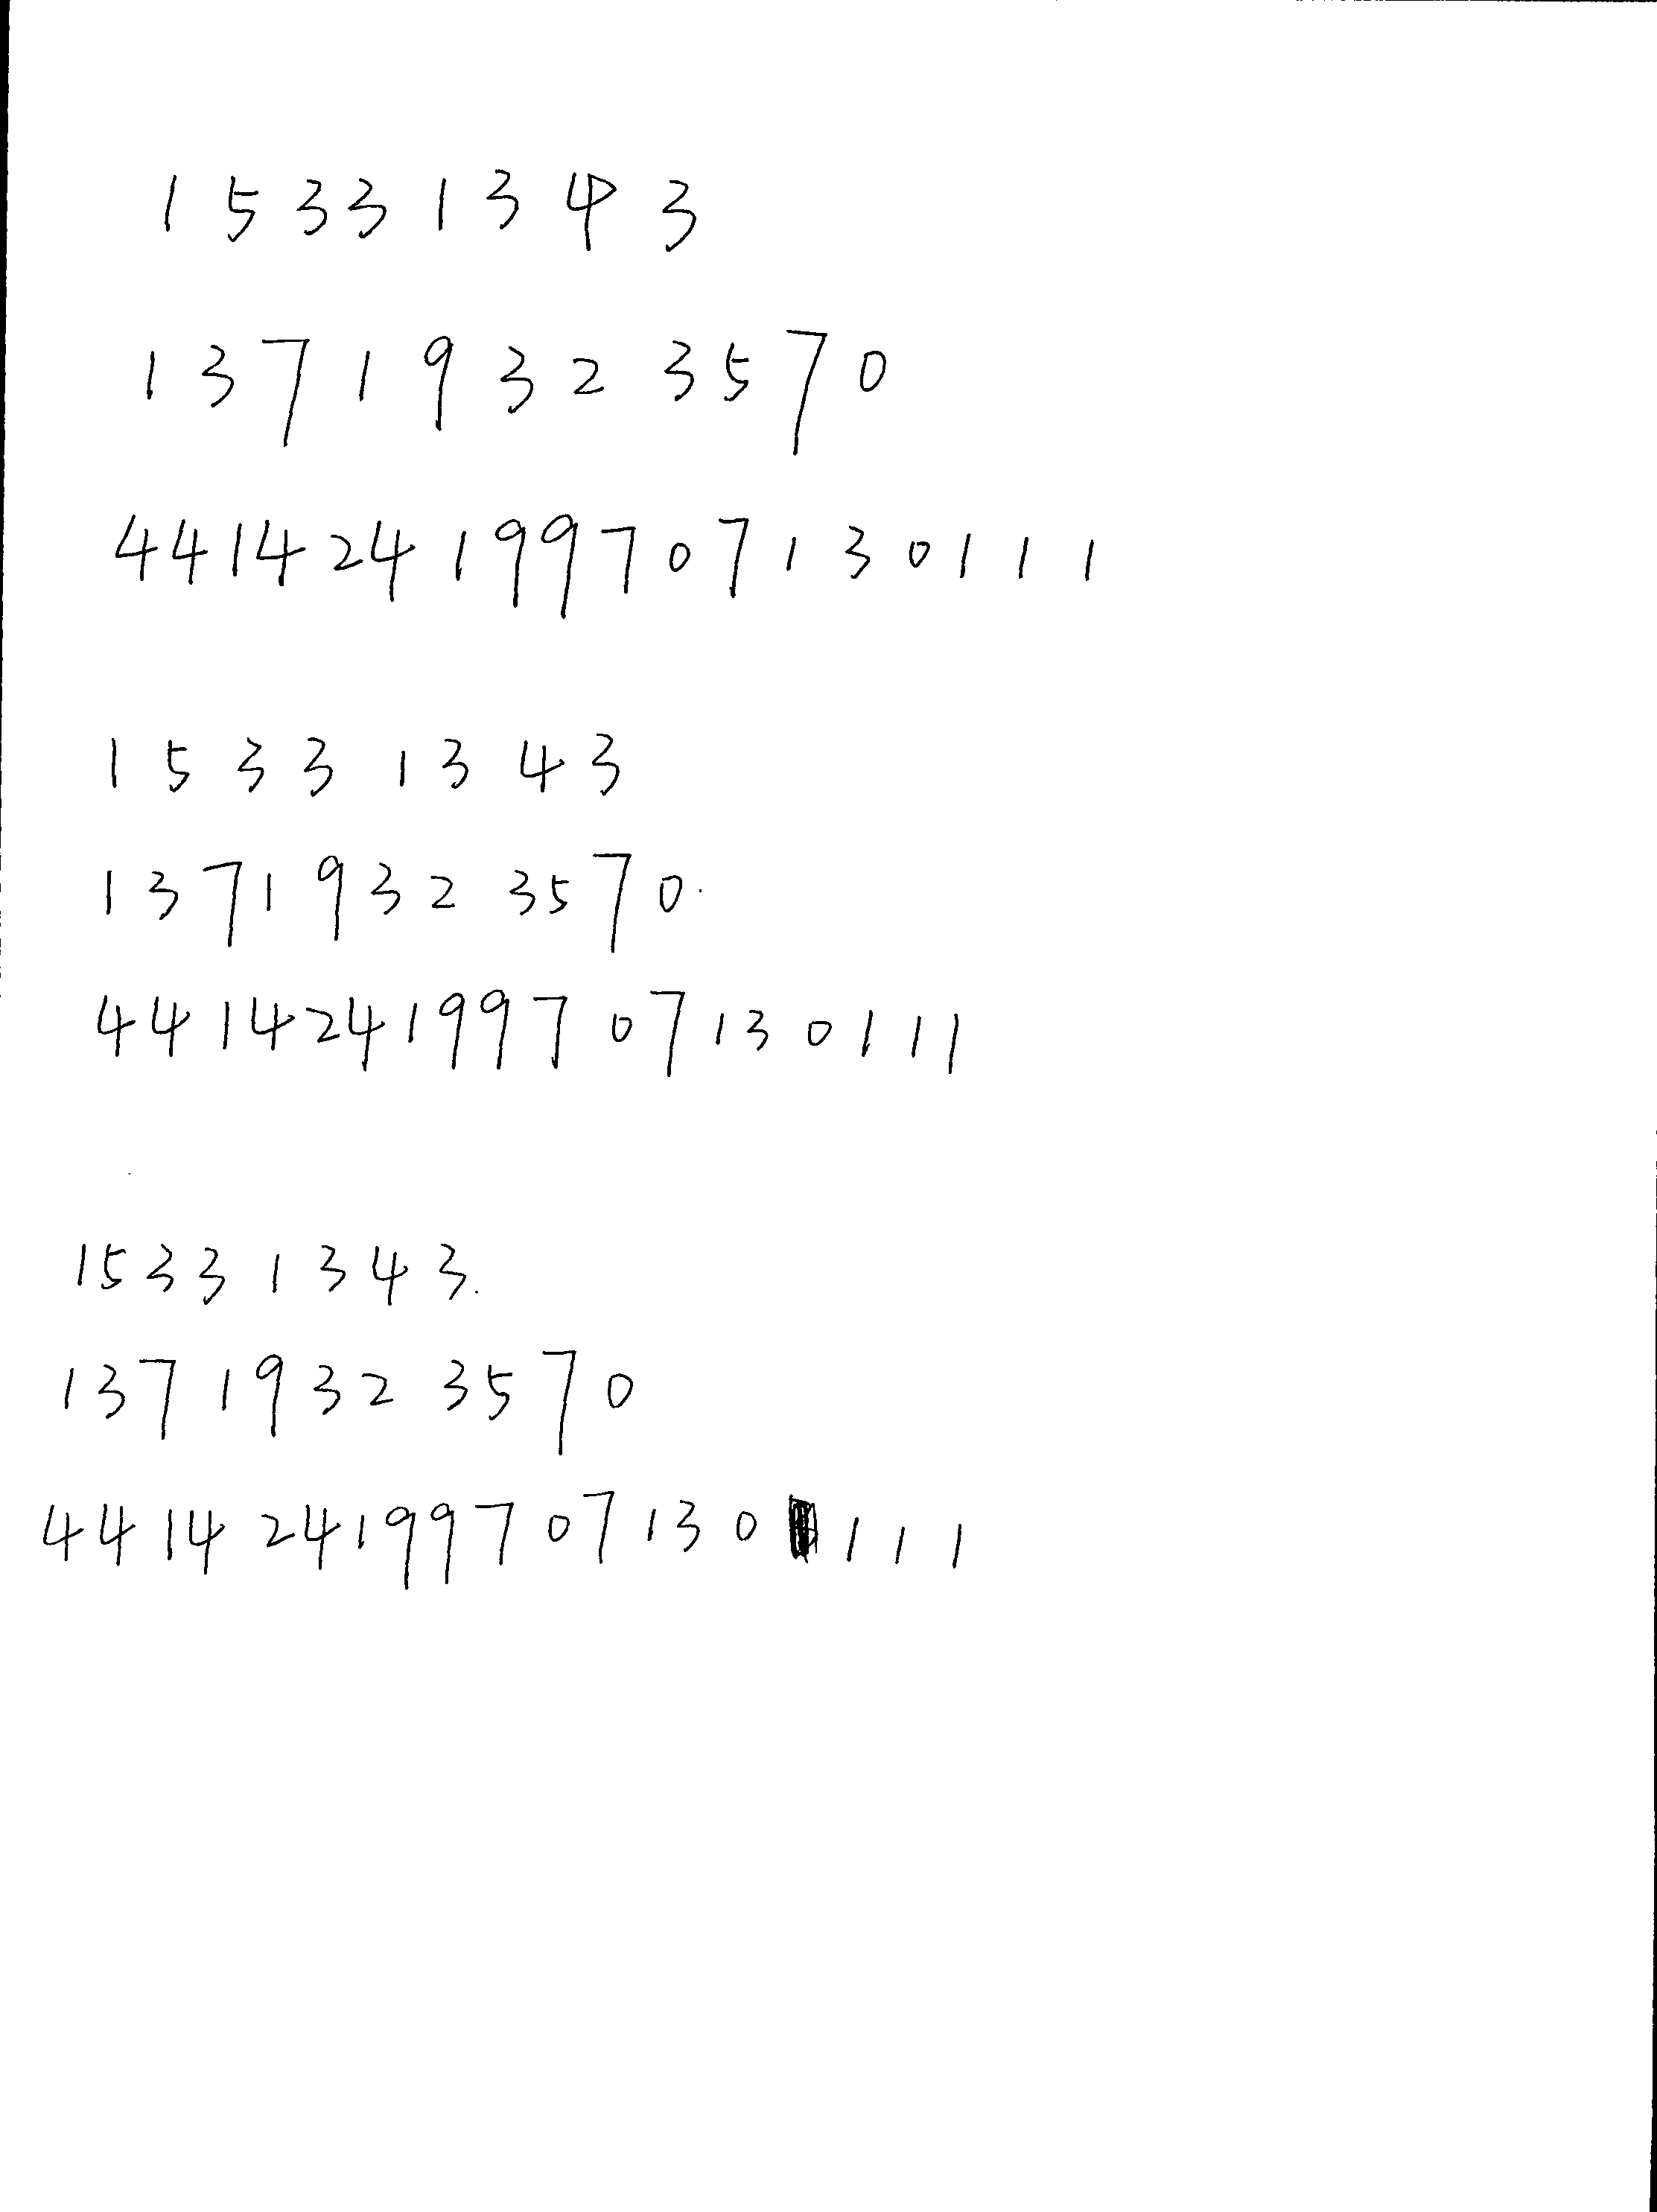 15331343
13719323570
441424199707130111
15331343
13719323570
441424199707130111
15331343
13719323570
441424199707130111